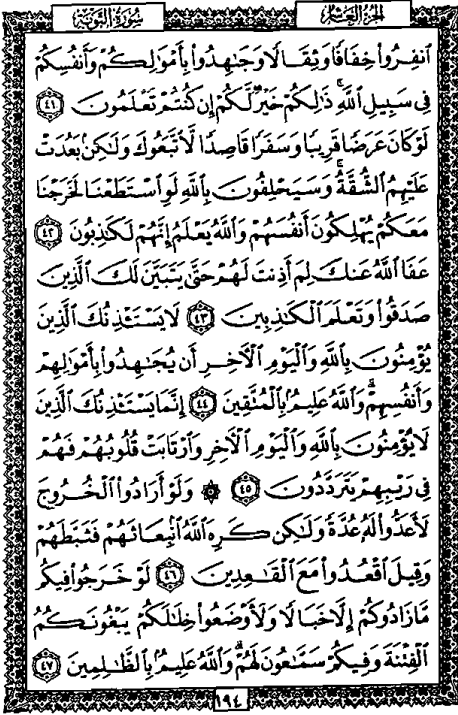 سُورَةُ التَّوْبَةِ
الجُزْءُ العَاشِرُ
ٱنفِرُوا۟ خِفَافًا وَثِقَالًا وَجَـٰهِدُوا۟ بِأَمْوَٰلِكُمْ وَأَنفُسِكُمْ
فِى سَبِيلِ ٱللَّهِ ۚ ذَٰلِكُمْ خَيْرٌ لَّكُمْ إِن كُنتُمْ تَعْلَمُونَ ٤١
لَوْ كَانَ عَرَضًا قَرِيبًا وَسَفَرًا قَاصِدًا لَّٱتَّبَعُوكَ وَلَـٰكِنۢ بَعُدَتْ
عَلَيْهِمُ ٱلشُّقَّةُ ۚ وَسَيَحْلِفُونَ بِٱللَّهِ لَوِ ٱسْتَطَعْنَا لَخَرَجْنَا
مَعَكُمْ يُهْلِكُونَ أَنفُسَهُمْ وَٱللَّهُ يَعْلَمُ إِنَّهُمْ لَكَـٰذِبُونَ ٤٢
عَفَا ٱللَّهُ عَنكَ لِمَ أَذِنتَ لَهُمْ حَتَّىٰ يَتَبَيَّنَ لَكَ ٱلَّذِينَ
صَدَقُوا۟ وَتَعْلَمَ ٱلْكَـٰذِبِينَ ٤٣ لَا يَسْتَـْٔذِنُكَ ٱلَّذِينَ
يُؤْمِنُونَ بِٱللَّهِ وَٱلْيَوْمِ ٱلْـَٔاخِرِ أَن يُجَـٰهِدُوا۟ بِأَمْوَٰلِهِمْ
وَأَنفُسِهِمْ ۗ وَٱللَّهُ عَلِيمٌۢ بِٱلْمُتَّقِينَ ٤٤ إِنَّمَا يَسْتَـْٔذِنُكَ ٱلَّذِينَ
لَا يُؤْمِنُونَ بِٱللَّهِ وَٱلْيَوْمِ ٱلْـَٔاخِرِ وَٱرْتَابَتْ قُلُوبُهُمْ فَهُمْ
فِى رَيْبِهِمْ يَتَرَدَّدُونَ ٤٥ ۞ وَلَوْ أَرَادُوا۟ ٱلْخُرُوجَ
لَأَعَدُّوا۟ لَهُۥ عُدَّةً وَلَـٰكِن كَرِهَ ٱللَّهُ ٱنۢبِعَاثَهُمْ فَثَبَّطَهُمْ
وَقِيلَ ٱقْعُدُوا۟ مَعَ ٱلْقَـٰعِدِينَ ٤٦ لَوْ خَرَجُوا۟ فِيكُم
مَّا زَادُوكُمْ إِلَّا خَبَالًا وَلَأَوْضَعُوا۟ خِلَـٰلَكُمْ يَبْغُونَكُمُ
ٱلْفِتْنَةَ وَفِيكُمْ سَمَّـٰعُونَ لَهُمْ ۗ وَٱللَّهُ عَلِيمٌۢ بِٱلظَّـٰلِمِينَ ٤٧
١٩٤